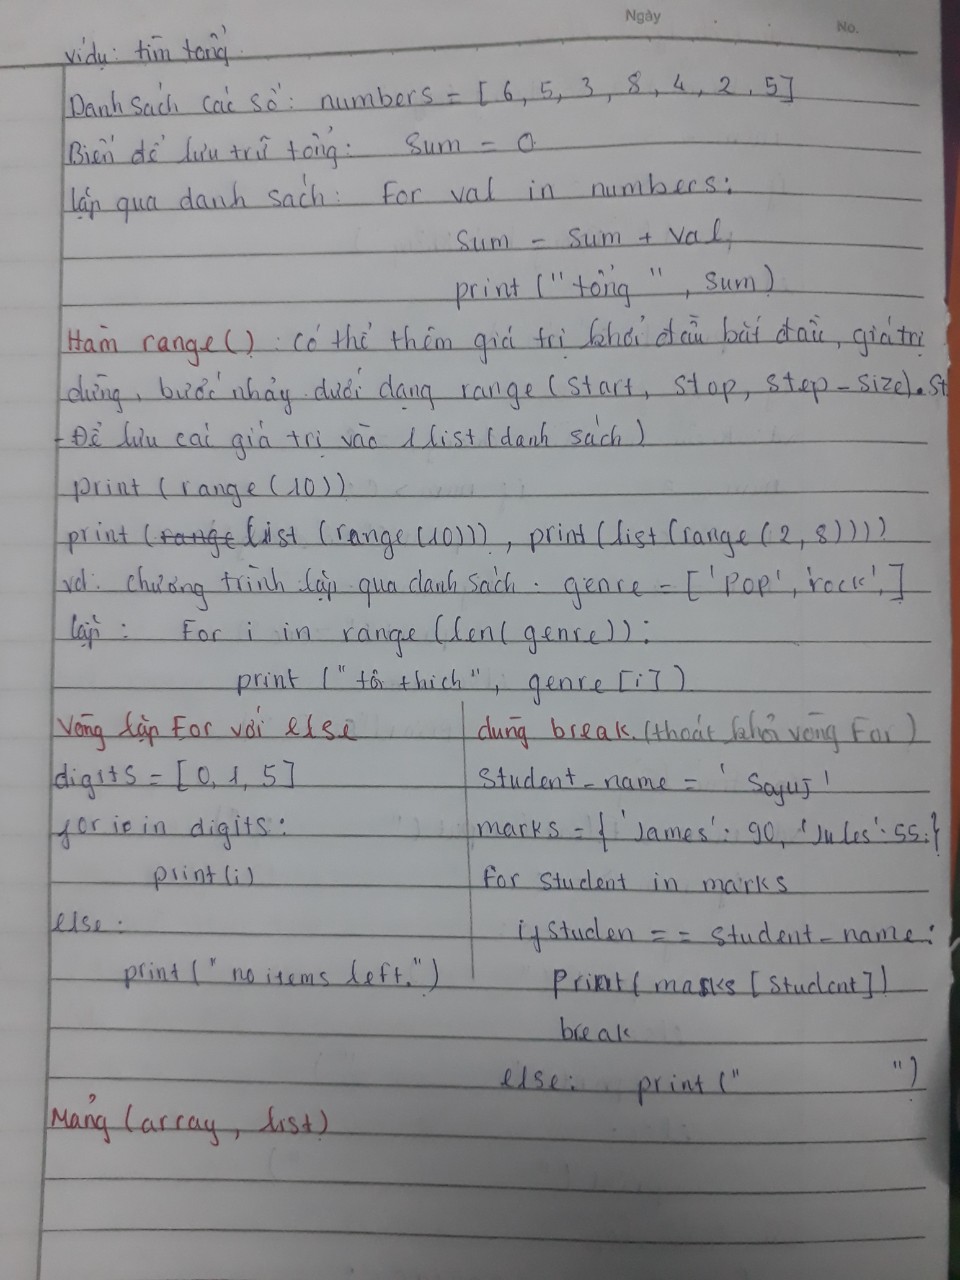 Ngày
No.
Ví dụ: tìm tổng.
Danh sách các số: numbers = [6, 5, 3, 8, 4, 2, 5]
Biến để lưu trữ tổng: Sum = 0
lặp qua danh sách: For val in numbers:
Sum = Sum + val
print ("tổng", Sum)
Hàm range(): có thể thêm giá trị khởi đầu bắt đầu, giá trị
dừng, bước nhảy dưới dạng range (Start, Stop, Step-Size).
- Để lưu các giá trị vào 1 list (danh sách)
print (range (10))
print (range list (range (10))), print (list (range (2, 8))))
vd: chương trình lặp qua danh sách. genre = ['Pop', 'rock',]
lặp: For i in range (len( genre)):
print ("tôi thích", genre [i])
Vòng lặp For với else
digits = [0, 1, 5]
for i in digits:
print(i)
else:
print ("no items left.")
dùng break. (thoát khỏi vòng For)
Student_name = 'Soyuj'
marks = { 'James': 90, 'Jules': 55.}
For student in marks
if studen == student_name:
Print( marks [Student])
break
else: print (" ")
Mảng (array, list)